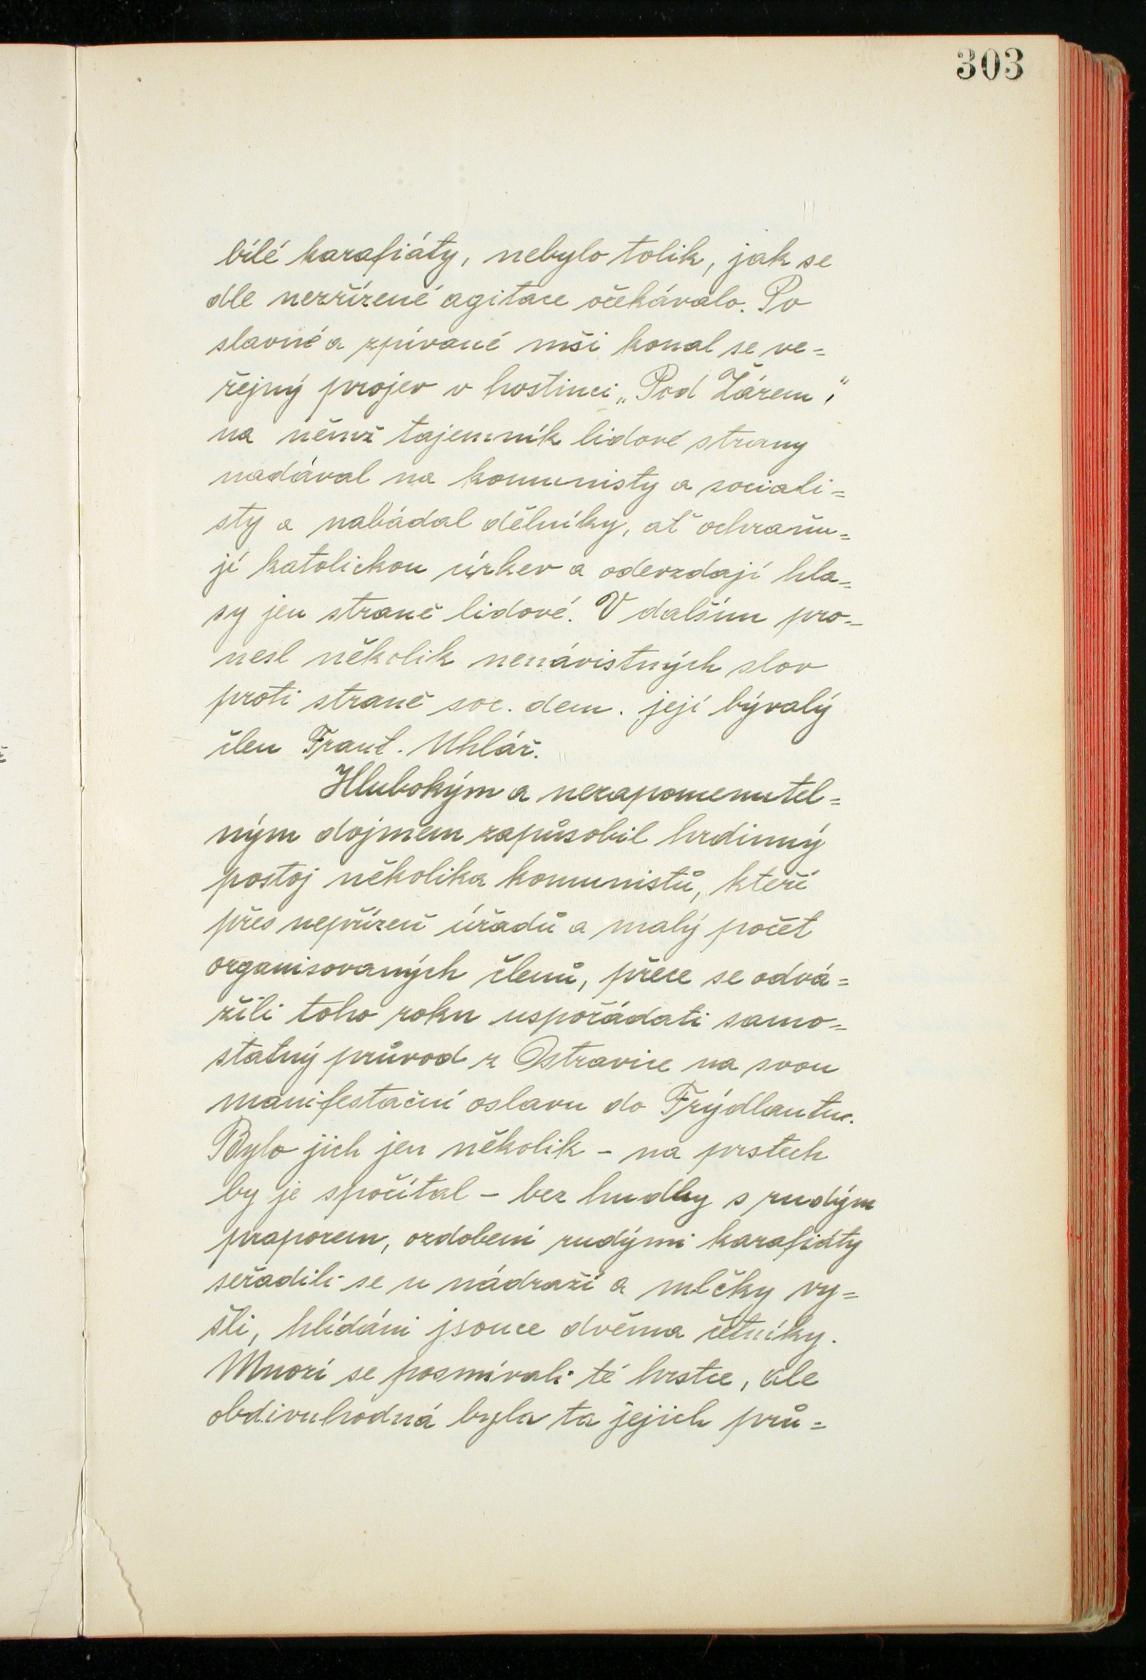 303
bílé karafiáty, nebylo tolik, jak se
dle nezřízené agitace očekávalo. Po
slavné a zpívané mši konal se ve=
řejný projev v hostinci „Pod Žárem“,
na němž tajemník lidové strany
nadával na komunisty a sociali=
sty a nabádal dělníky, ať ochraňu=
jí katolickou církev a odevzdají hla=
sy jen straně lidové. V dalším pro=
nesl několik nenávistných slov
proti straně soc. dem. její bývalý
člen Frant. Uhlář.
Hlubokým a nezapomenutel=
ným dojmem zapůsobil hrdinný
postoj několika komunistů, kteří
přes nepřízeň úřadů a malý počet
organisovaných členů, přece se odvá=
žili toho roku uspořádati samo=
statný průvod z Ostravice na svou
manifestační oslavu do Frýdlantu.
Bylo jich jen několik – na prstech
by je spočítal – bez hudby s rudým
praporem, ozdobeni rudými karafiáty
seřadili se u nádraží a mlčky vy=
šli, hlídáni jsouce dvěma četníky.
Mnozí se posmívali té hrstce, ale
obdivuhodná byla ta jejich prů=